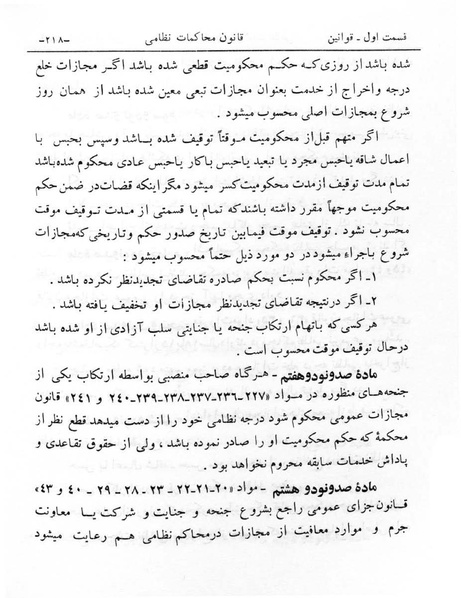 قسمت اول ـ قوانین قانون محاکمات نظامی -۲۱۸-
شده باشد از روزی که حکم محکومیت قطعی شده باشد اگر مجازات خلع
درجه و اخراج از خدمت بعنوان مجازات تبعی معین شده باشد از همان روز
شروع بمجازات اصلی محسوب میشود .
اگر متهم قبل از محکومیت موقتاً توقیف شده باشد و سپس بحبس با
اعمال شاقه یا حبس مجرد یا تبعید یا حبس با کار یا حبس عادی محکوم شده باشد
تمام مدت توقیف از مدت محکومیت کسر میشود مگر اینکه قضات در ضمن حکم
محکومیت موجهاً مقرر داشته باشند که تمام یا قسمتی از مدت توقیف موقت
محسوب نشود . توقیف موقت فیمابین تاریخ صدور حکم و تاریخی که مجازات
شروع باجراء میشود در دو مورد ذیل حتماً محسوب میشود :
۱ـ اگر محکوم نسبت بحکم صادره تقاضای تجدیدنظر نکرده باشد .
۲ـ اگر در نتیجه تقاضای تجدیدنظر مجازات او تخفیف یافته باشد .
هر کسی که باتهام ارتکاب جنحه یا جنایتی سلب آزادی از او شده باشد
در حال توقیف موقت محسوب است .
مادۀ صدونودوهفتم ـ هر گاه صاحب منصبی بواسطه ارتکاب یکی از
جنحه‌های منظوره در مواد «۲۲۷-۲۳۶-۲۳۷-۲۳۸-۲۳۹-۲۴۰ و ۲۴۱» قانون
مجازات عمومی محکوم شود درجه نظامی خود را از دست میدهد قطع نظر از
محکمۀ که حکم محکومیت او را صادر نموده باشد ، ولی از حقوق تقاعدی و
پاداش خدمات سابقه محروم نخواهد بود .
مادۀ صدونودو هشتم ـ مواد «۲۰-۲۱-۲۲ - ۲۳ - ۲۸ - ۲۹ - ۴۰ و ۴۳»
قانون جزای عمومی راجع بشروع جنحه و جنایت و شرکت یا معاونت
جرم و موارد معافیت از مجازات در محاکم نظامی هم رعایت میشود